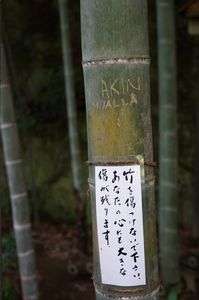 AKIN
WALLA
竹を傷つけないで下さい。
あなたの心にも大きな
傷が残ります。